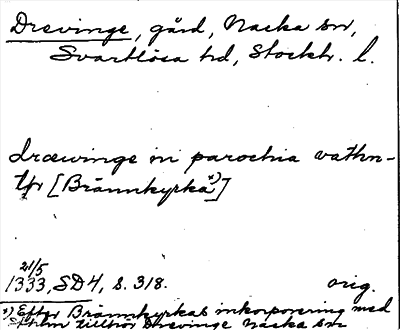 Drevinge, gård, Nacka sn,
Svartlösa hd, Stockh. l.
dræwinge in parochia vathn-
[Brännkyrka*)]
21/5
1333, SD 4, s. 318. orig.
*) Efter Brännkyrkas inkorporering med
Sthlm tillhör Drevinge Nacka sn